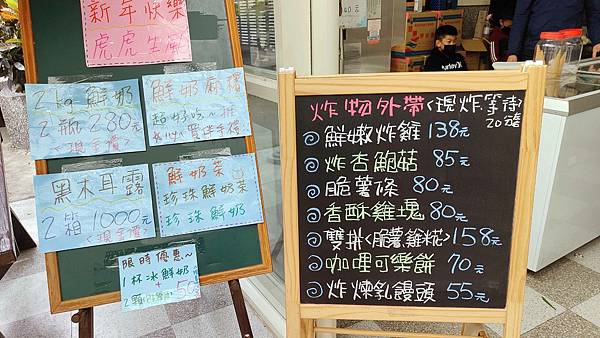 新年快樂
虎虎生風
2kg鮮奶
2瓶280元
<現金價>
鮮奶麻糬
超好吃~推
黑木耳露
2箱1000元
<現金價>
鮮奶茶
珍珠鮮奶茶
珍珠鮮奶
限時優惠~
1杯冰鮮奶
+
50元
炸物外帶<現炸等待20分鐘>
◎鮮嫩炸雞138元
◎炸杏鮑菇 85元
◎脆薯條 80元
◎香酥雞塊80元
◎雙拼<脆薯.雞米花>158元
◎咖哩可樂餅 70元
◎炸煉乳饅頭 55元